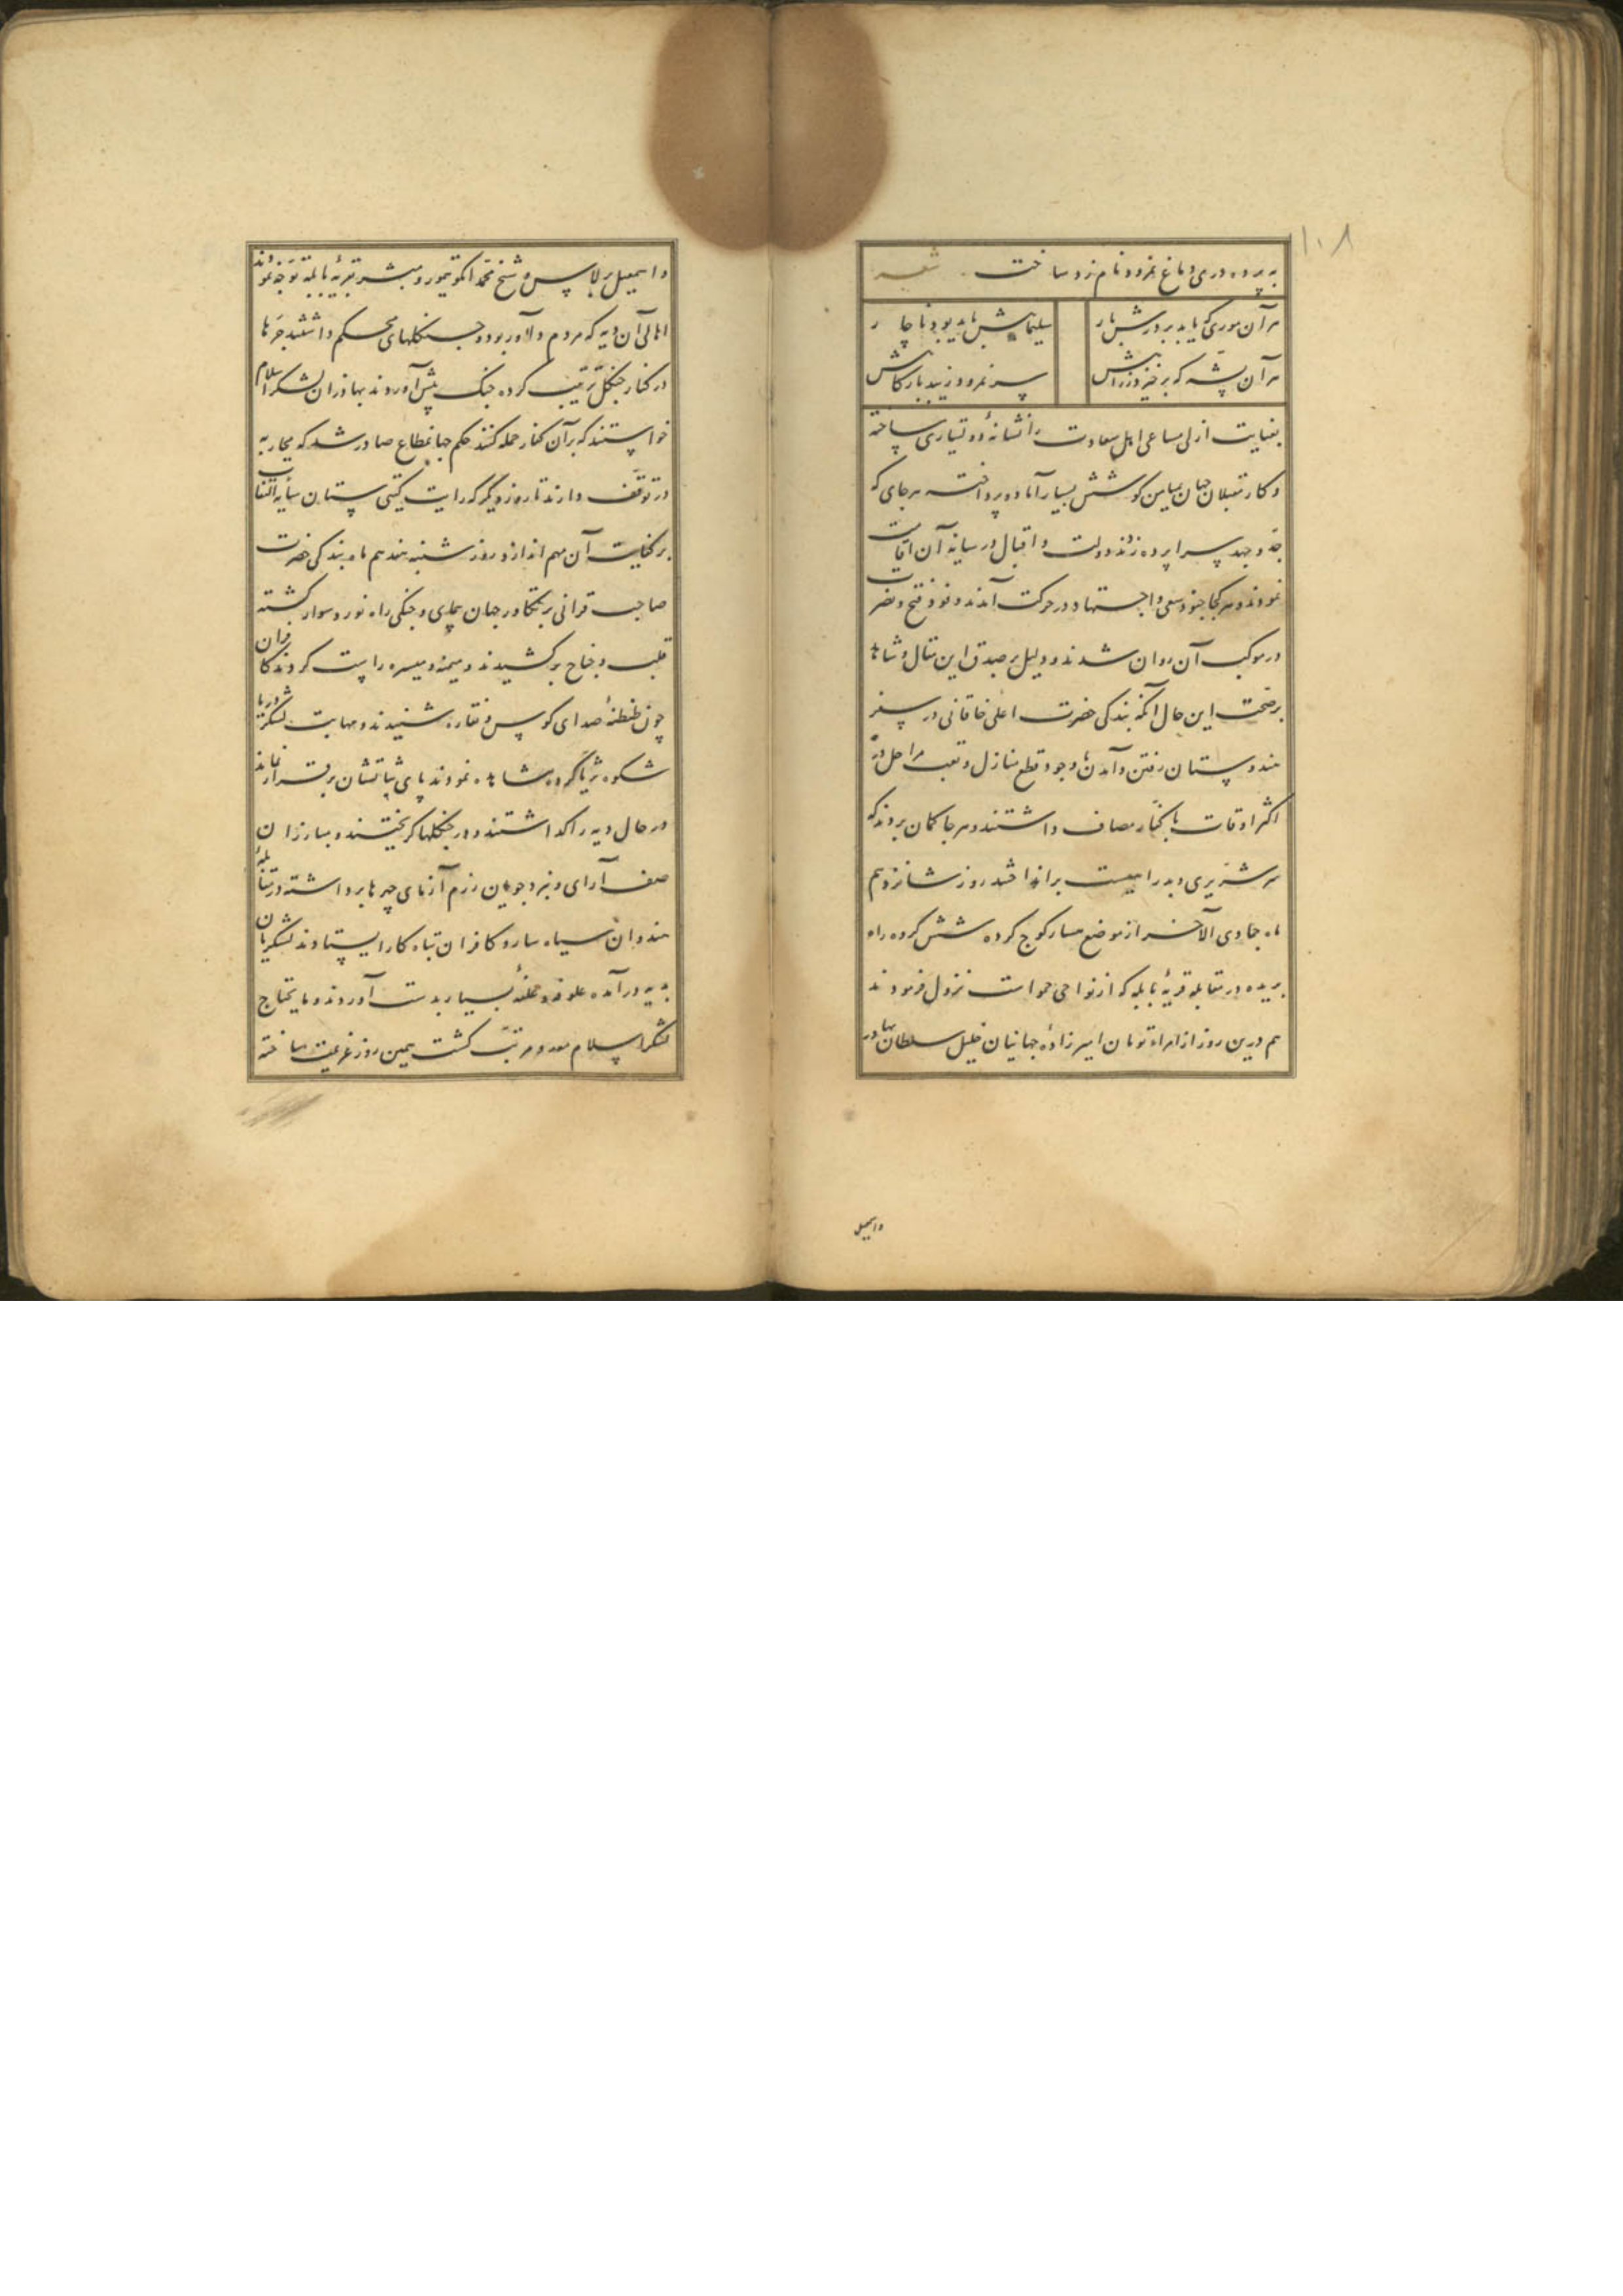 ۱۰۸
به پرده دری دماغ نمرود نام زد ساخت شعر
هر آن موری که یابد بر درش بار
سلیمانیش باید بود ناچار
هر آن پشه که برخیزد ز راهش
سر نمرود زیبد بارگاهش
بعنایت ازلی مساعی اهل سعادت را نشانه ساخته
و کار مقبلان جهان بمیامن کوشش بسیار آماده و پرداخته هر جای که
جد و جهد سراپرده زند دولت و اقبال در سایه آن اقامت
نمودند و هر کجا جنود سعی و اجتهاد در حرکت آمدند وفود فتح و نصرت
در موکب آن روان شدند و دلیل بر صدق این مقال و شاهد
بر صحت این حال آنکه بندگی حضرت اعلی خاقانی در سفر
هندوستان رفتن و آمدن با وجود قطع منازل و تعب مراحل در
اکثر اوقات با کفار مصاف داشتند و هر جا کمان بردند که
سر شریری و بدرا بیست براندا روز شانزدهم
ماه جمادی الآخر از موضع مسار کوج کرده شش کروه راه
بریده در مقابله قریهٔ بابله که از نواحی جمو است نزول فرمودند
هم درین روز از امراء تومان امیرزاده جهانیان خلیل سلطان بهادر
و اسمعیل
و اسمعیل برلاس و شیخ محمد ایکو تیمور و مبشر بقریهٔ بابله توجه نمودند
اهالی آن دیه که مردم دلاور بود و جنکلهای محکم داشتند چرها
در کنار جنکل ترتیب کرده جنک پیش آوردند بهادران لشکر اسلام
خواستند که بر آن کفار حمله کنند حکم جهانمطاع صادر شد که محاربه
در توقف دارند تا روز دیگر که رایت کیتی ستان سایه التفات
بر کفایت آن مهم اندازد روز شنبه هفدهم ماه بندکی حضرت
صاحب قرانی بر تکاور جهان پیمای و جنکی راه نورد سوار کشته
قلب و جناح بر کشیدند و میمنه و میسره راست کردند کافران
چون طنطنهٔ صدای کوس و نقاره شنیدند و مهابت لشکر دریا
شکوه ثریا کروه مشاهده نمودند پای ثباتشان بر قرار نماند
در حال دیه را کذاشتند و در جنکلها کریختند و مبارزان
صف آرای و نبرد جویان رزم آزمای چپرها برداشته در مقابلهٔ
هندوان سیاه سار و کافران تباه کار ایستادند لشکریان
بدیه درآمده علوفه و غله بسیار بدست آوردند و مایحتاج
لشکر اسلام معد و مرتب کشت همین روز عزیمت ساخته